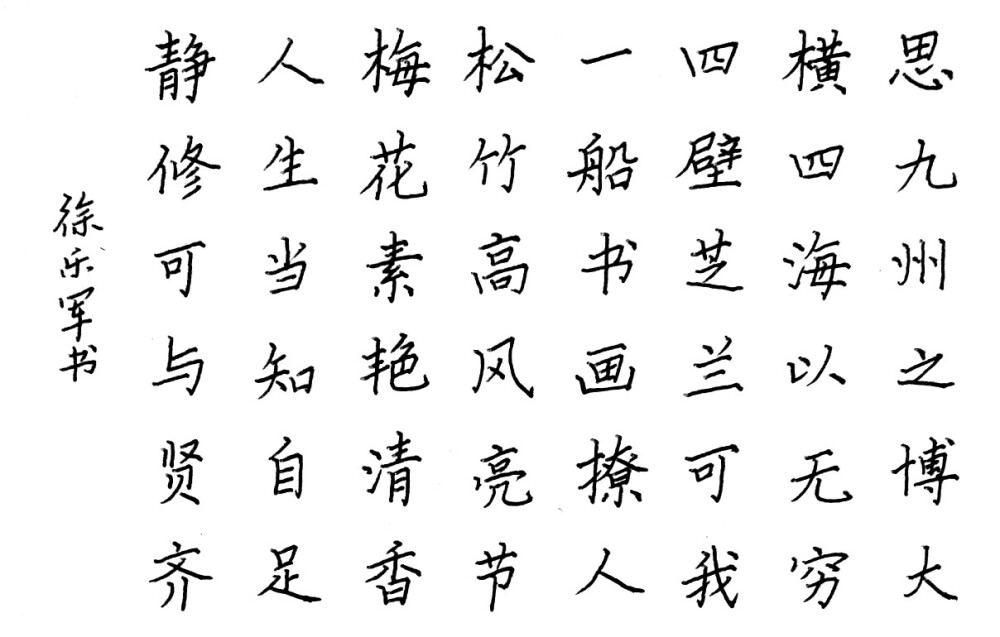 思九州之博大
横四海以无穷
四壁芝兰可我
一船书画撩人
松竹高风亮节
梅花素艳清香
人生当知自足
静修可与贤齐
徐乐军书